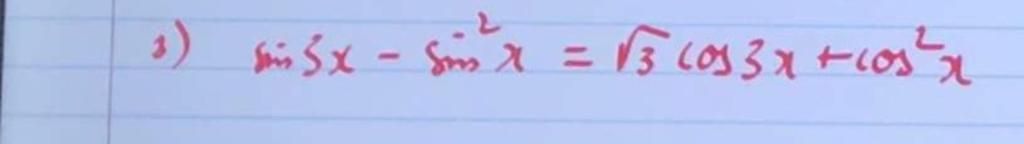 3) sin 3x - sin²x = √3 cos 3x + cos²x